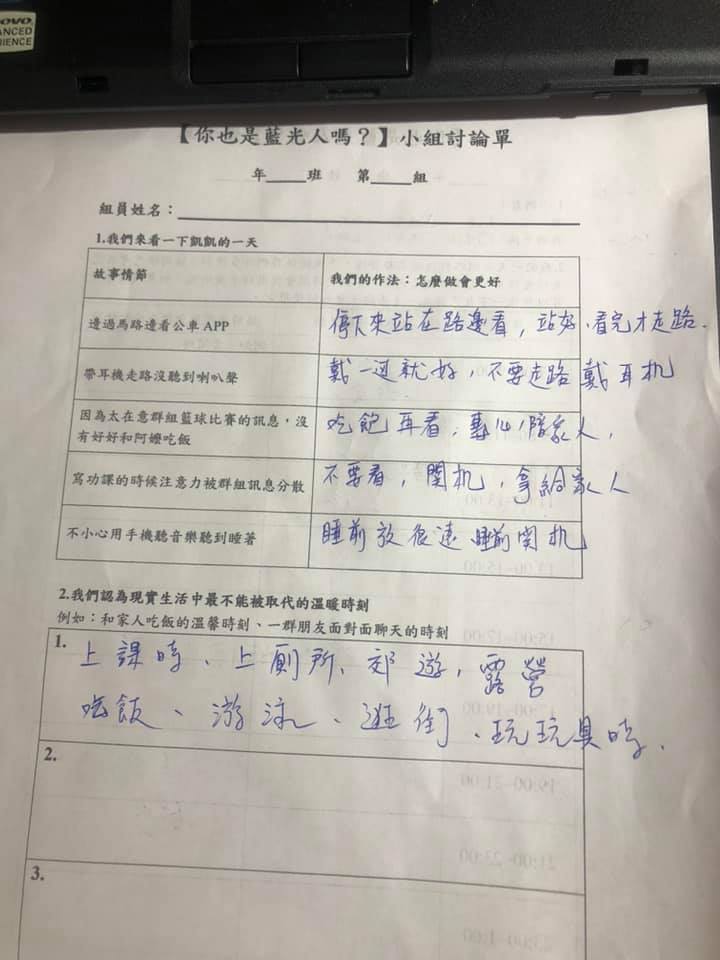 ovo
ANCED
IENCE
【你也是藍光人嗎？】小組討論單
年____班 第____組
組員姓名：
1.我們來看一下凱凱的一天
故事情節 我們的作法：怎麼做會更好
邊過馬路邊看公車 APP 停下來站在路邊看，站好、看完才走路.
帶耳機走路沒聽到喇叭聲 戴一邊就好，不要走路戴耳机
因為太在意群組籃球比賽的訊息，沒
有好好和阿嬤吃飯 吃飽再看，專心陪家人，
寫功課的時候注意力被群組訊息分散 不要看，關机，拿給家人
不小心用手機聽音樂聽到睡著 睡前放很遠 睡前関机
2.我們認為現實生活中最不能被取代的溫暖時刻
例如：和家人吃飯的溫馨時刻、一群朋友面對面聊天的時刻
1. 上課時、上廁所、郊遊，露營
吃飯、游泳、逛街、玩玩具時、
2.
3.